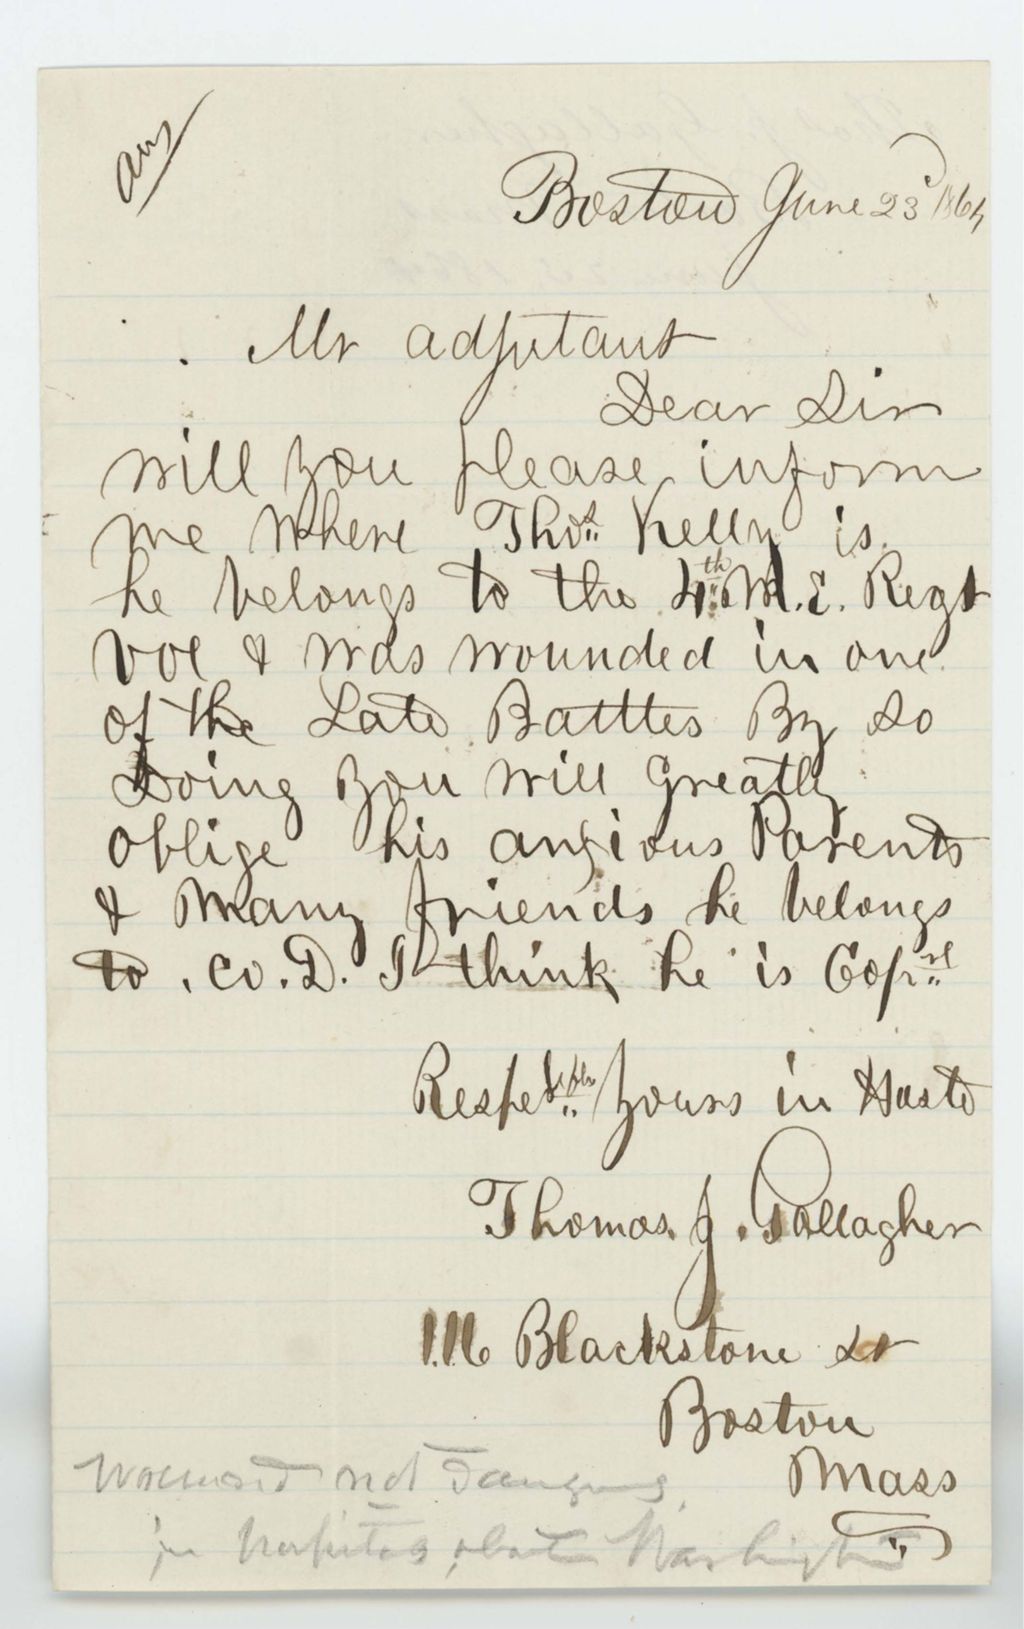 ans
Boston June 23d 1864
Mr adjutant
Dear Sir
will you please inform
me where Thos. Kelly is.
he belongs to the 4th M.E. Regt
vol & was wounded in one
of the Late Battles By so
Doing you will greatly
oblige his anxious Parents
& Many friends he belongs
to . co. D. I think he is Coprl
yours in Haste
Thomas. J. Gallagher
116 Blackstone St
Boston
Mass
Wound not dangerous.
in hospital about Washington